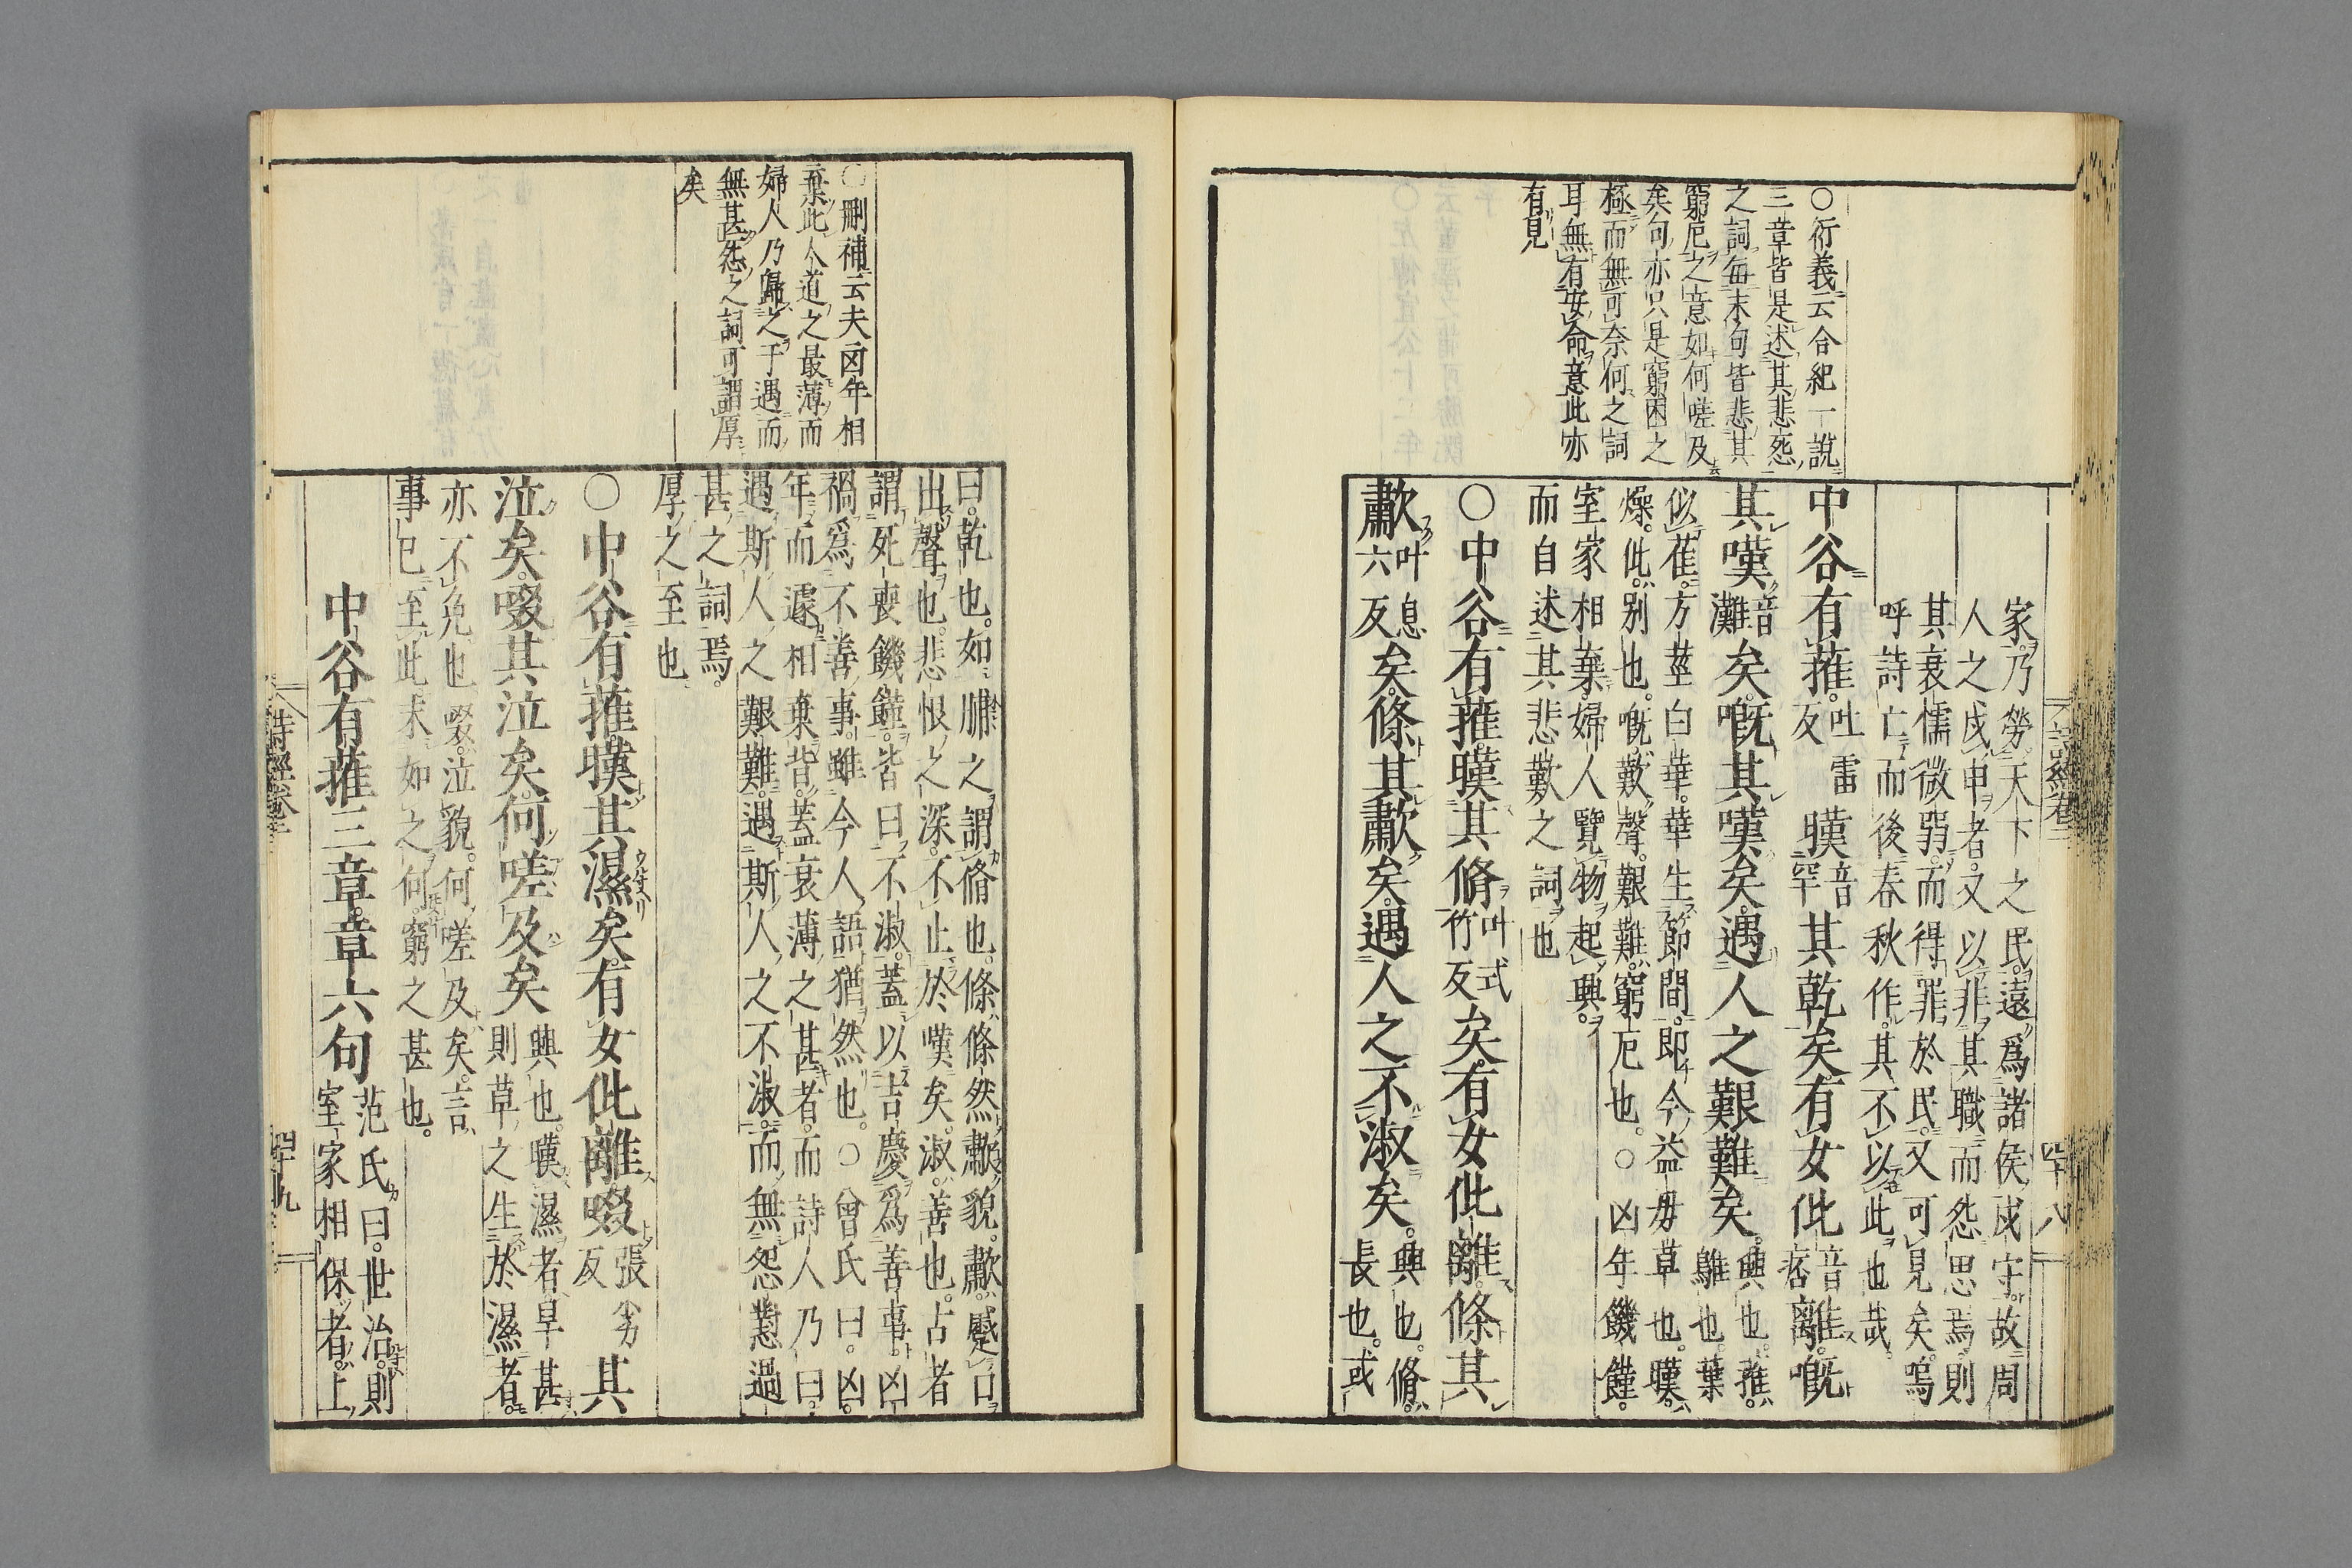 ○衍義云合紀一說
三章皆是述其悲怨
之詞每末句皆悲其
窮戹之意如何嗟及
矣句亦只是窮困之
極而無可奈何之詞
耳無有安命意此亦
有見
家乃勞天下之民遠爲諸侯戍守故周
人之戍申者又以非其職而怨思焉則
其衰懦微弱而得罪於民又可見矣嗚
呼詩亡而後春秋作其不以此也哉
中谷有蓷吐雷反暵音罕其乾矣有女仳音痞離嘅
其嘆音灘矣嘅其嘆矣遇人之艱難矣興也蓷鵻也葉
似萑方莖白華華生節間即今益毋草也暵
燥仳別也嘅歎聲艱難窮戹也○凶年饑饉
室家相棄婦人覽物起興
而自述其悲歎之詞也
○中谷有蓷暵其脩叶式竹反矣有女仳離條其
歗叶息六反矣條其歗矣遇人之不淑矣興也脩長也或
詩經卷二
四十八
○刪補云夫凶年相
棄此人道之最薄而
婦人乃歸之于遇而
無甚怨之詞可謂厚
矣
曰乾也如脯之謂脩也條條然歗貌歗蹙口
出聲也悲恨之深不止於嘆矣淑善也古者
謂死喪饑饉皆曰不淑蓋以吉慶爲善事凶
禍爲不善事雖今人語猶然也○曾氏曰凶
年而遽相棄背蓋衰薄之甚者而詩人乃曰
遇斯人之艱難遇斯人之不淑而無怨懟過
甚之詞焉
厚之至也
○中谷有蓷暵其濕矣有女仳離啜張劣反其
泣矣啜其泣矣何嗟及矣興也暵濕者旱甚則草之生於濕者
亦不免也啜泣貌何嗟及矣言
事已至此末如之何窮之甚也
中谷有蓷三章章六句范氏曰世治則室家相保者上
詩經卷二
四十九